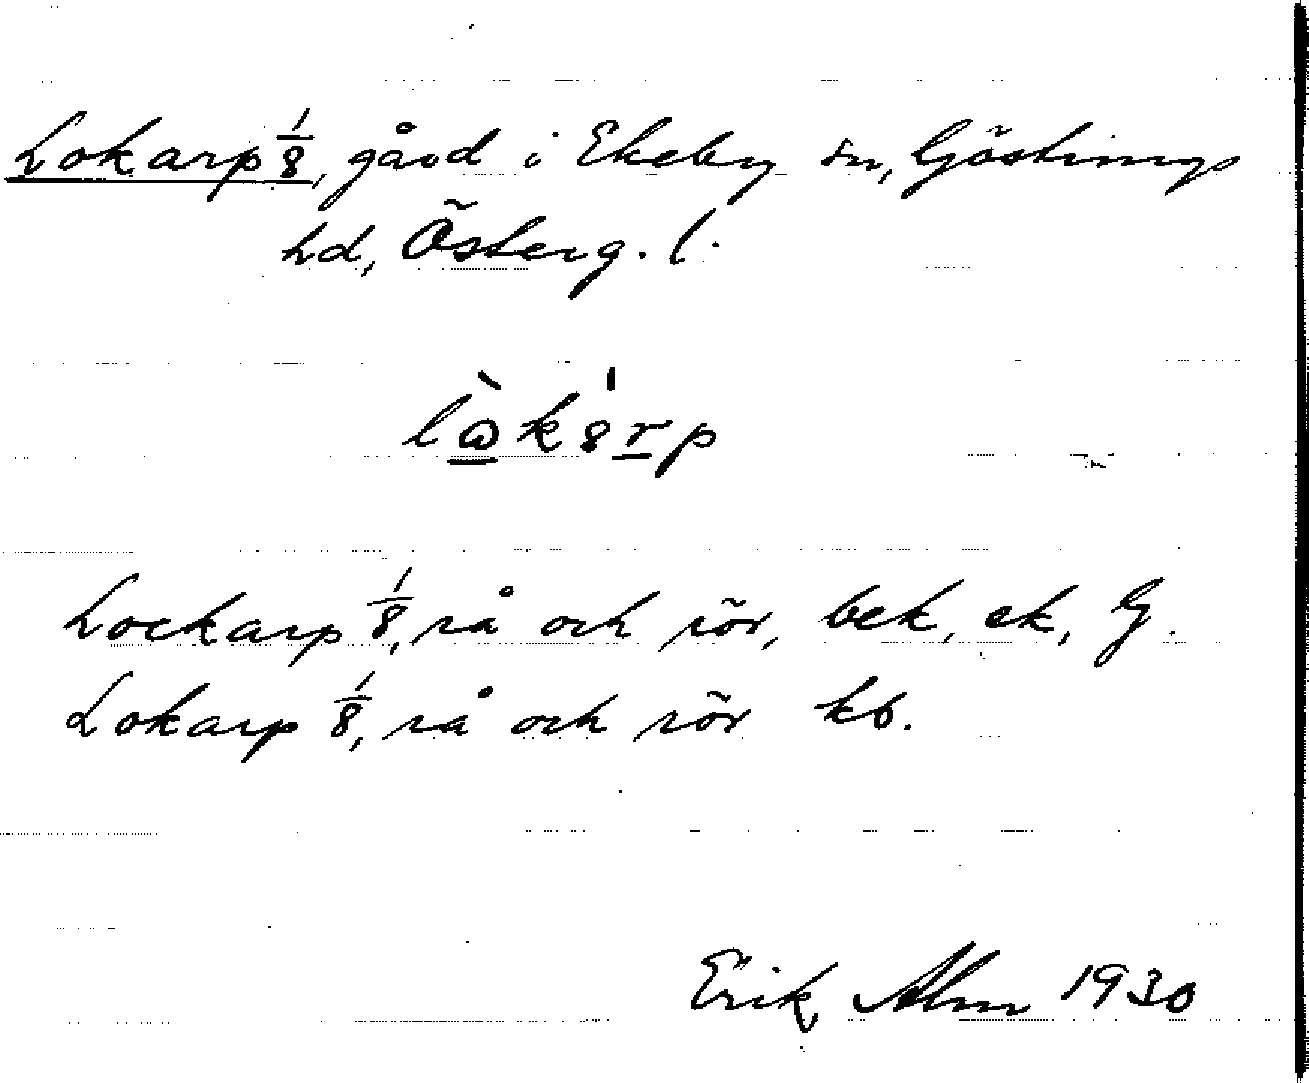 Lokarp 1/8, gård i Ekeby sn, Göstrings
hd, Österg. l.
Lockarp 1/8, rå och rör, bek, ek, G.
Lokarp 1/8, rå och rör kb.
Erik Alm 1930